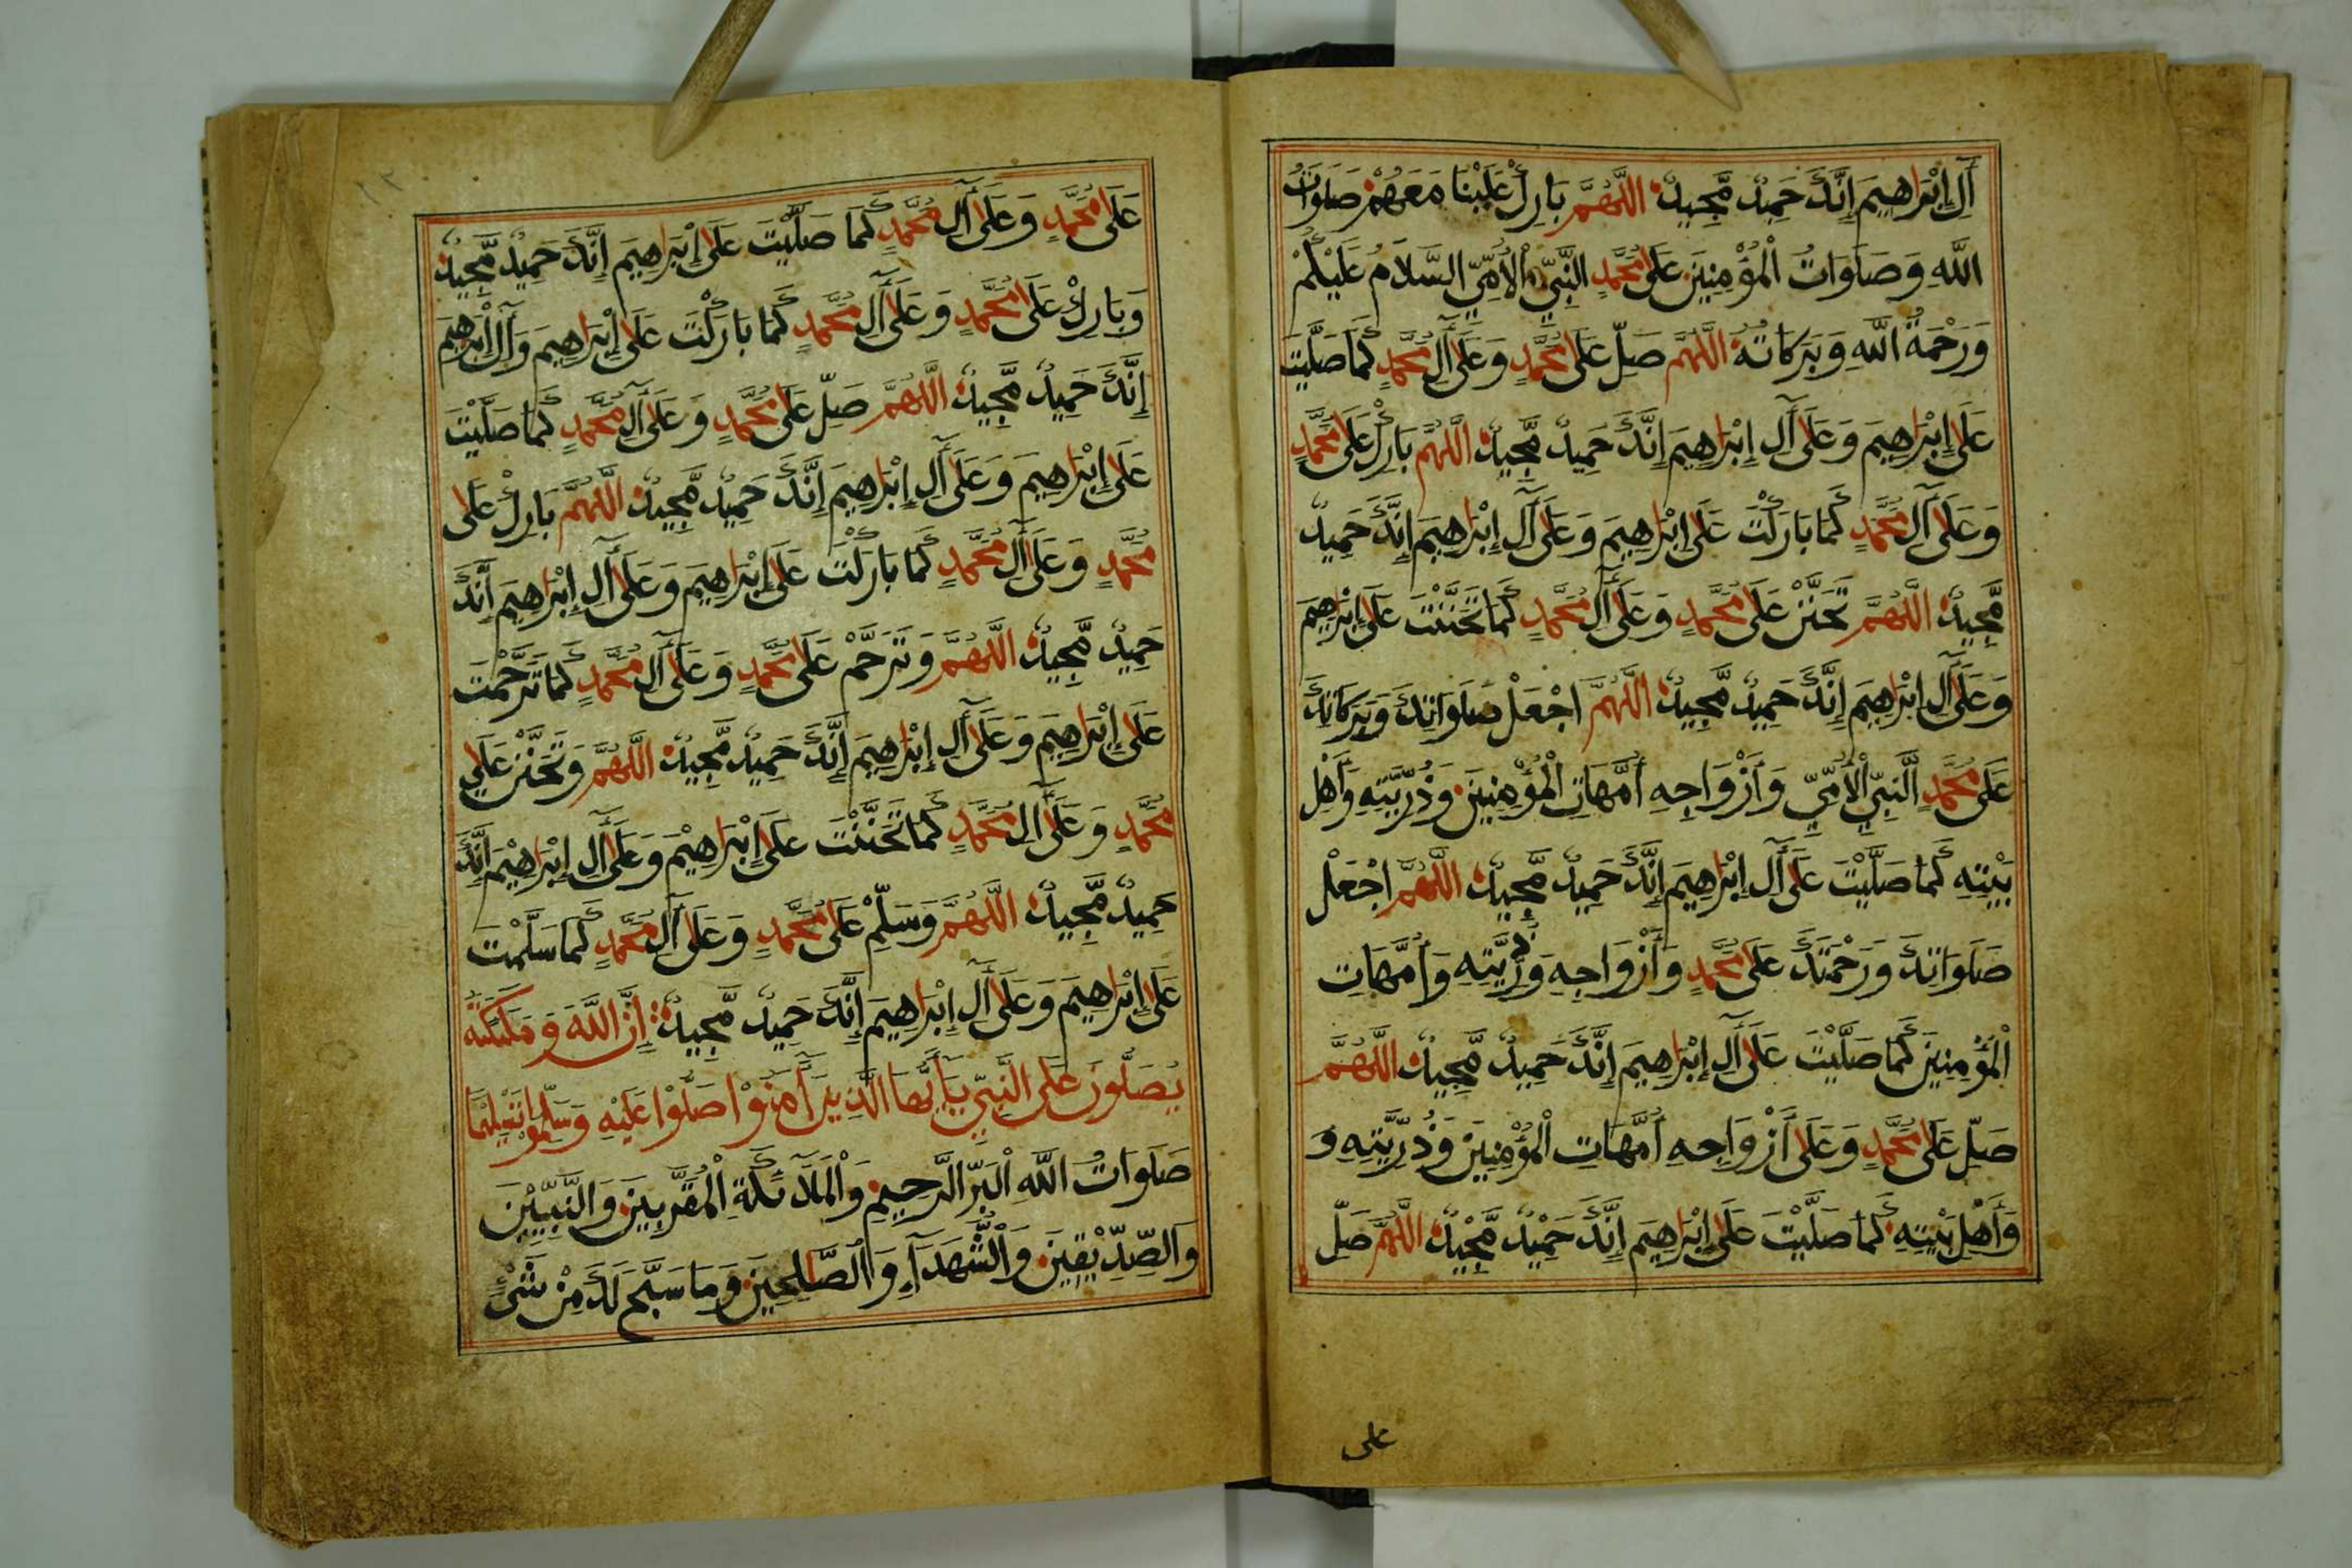 آلِ إِبْرَاهِيمَ إِنَّكَ حَمِيدٌ مَّجِيدٌ اللَّهُمَّ بَارِكْ عَلَيْنَا مَعَهُمْ صَلَوَاتُ
اللَّهِ وَصَلَوَاتُ الْمُؤْمِنِينَ عَلَى مُحَمَّدٍ النَّبِيِّ الْأُمِّيِّ السَّلَامُ عَلَيْكُمْ
وَرَحْمَةُ اللَّهِ وَبَرَكَاتُهُ اللَّهُمَّ صَلِّ عَلَى مُحَمَّدٍ وَعَلَى آلِ مُحَمَّدٍ كَمَا صَلَّيْتَ
عَلَى إِبْرَاهِيمَ وَعَلَى آلِ إِبْرَاهِيمَ إِنَّكَ حَمِيدٌ مَّجِيدٌ اللَّهُمَّ بَارِكْ عَلَى مُحَمَّدٍ
وَعَلَى آلِ مُحَمَّدٍ كَمَا بَارَكْتَ عَلَى إِبْرَاهِيمَ وَعَلَى آلِ إِبْرَاهِيمَ إِنَّكَ حَمِيدٌ
مَّجِيدٌ اللَّهُمَّ تَحَنَّنْ عَلَى مُحَمَّدٍ وَعَلَى آلِ مُحَمَّدٍ كَمَا تَحَنَّنْتَ عَلَى إِبْرَاهِيمَ
وَعَلَى آلِ إِبْرَاهِيمَ إِنَّكَ حَمِيدٌ مَّجِيدٌ اللَّهُمَّ اجْعَلْ صَلَوَاتِكَ وَبَرَكَاتِكَ
عَلَى مُحَمَّدٍ النَّبِيِّ الْأُمِّيِّ وَأَزْوَاجِهِ أُمَّهَاتِ الْمُؤْمِنِينَ وَذُرِّيَّتِهِ وَأَهْلِ
بَيْتِهِ كَمَا صَلَّيْتَ عَلَى آلِ إِبْرَاهِيمَ إِنَّكَ حَمِيدٌ مَّجِيدٌ اللَّهُمَّ اجْعَلْ
صَلَوَاتِكَ وَرَحْمَتَكَ عَلَى مُحَمَّدٍ وَأَزْوَاجِهِ وَذُرِّيَّتِهِ وَأُمَّهَاتِ
الْمُؤْمِنِينَ كَمَا صَلَّيْتَ عَلَى آلِ إِبْرَاهِيمَ إِنَّكَ حَمِيدٌ مَّجِيدٌ اللَّهُمَّ
صَلِّ عَلَى مُحَمَّدٍ وَعَلَى أَزْوَاجِهِ أُمَّهَاتِ الْمُؤْمِنِينَ وَذُرِّيَّتِهِ وَ
وَأَهْلِ بَيْتِهِ كَمَا صَلَّيْتَ عَلَى إِبْرَاهِيمَ إِنَّكَ حَمِيدٌ مَّجِيدٌ اللَّهُمَّ صَلِّ
على
١٢
عَلَى مُحَمَّدٍ وَعَلَى آلِ مُحَمَّدٍ كَمَا صَلَّيْتَ عَلَى إِبْرَاهِيمَ إِنَّكَ حَمِيدٌ مَّجِيدٌ
وَبَارِكْ عَلَى مُحَمَّدٍ وَعَلَى آلِ مُحَمَّدٍ كَمَا بَارَكْتَ عَلَى إِبْرَاهِيمَ وَآلِ إِبْرَاهِيمَ
إِنَّكَ حَمِيدٌ مَّجِيدٌ اللَّهُمَّ صَلِّ عَلَى مُحَمَّدٍ وَعَلَى آلِ مُحَمَّدٍ كَمَا صَلَّيْتَ
عَلَى إِبْرَاهِيمَ وَعَلَى آلِ إِبْرَاهِيمَ إِنَّكَ حَمِيدٌ مَّجِيدٌ اللَّهُمَّ بَارِكْ عَلَى
مُحَمَّدٍ وَعَلَى آلِ مُحَمَّدٍ كَمَا بَارَكْتَ عَلَى إِبْرَاهِيمَ وَعَلَى آلِ إِبْرَاهِيمَ إِنَّكَ
حَمِيدٌ مَّجِيدٌ اللَّهُمَّ وَتَرَحَّمْ عَلَى مُحَمَّدٍ وَعَلَى آلِ مُحَمَّدٍ كَمَا تَرَحَّمْتَ
عَلَى إِبْرَاهِيمَ وَعَلَى آلِ إِبْرَاهِيمَ إِنَّكَ حَمِيدٌ مَّجِيدٌ اللَّهُمَّ وَتَحَنَّنْ عَلَى
مُحَمَّدٍ وَعَلَى آلِ مُحَمَّدٍ كَمَا تَحَنَّنْتَ عَلَى إِبْرَاهِيْمَ وَعَلَى آلِ إِبْرَاهِيْمَ إِنَّكَ
حَمِيدٌ مَّجِيدٌ اللَّهُمَّ وَسَلِّمْ عَلَى مُحَمَّدٍ وَعَلَى آلِ مُحَمَّدٍ كَمَا سَلَّمْتَ
عَلَى إِبْرَاهِيمَ وَعَلَى آلِ إِبْرَاهِيمَ إِنَّكَ حَمِيدٌ مَّجِيدٌ إِنَّ اللَّهَ وَمَلَٰئِكَتَهُ
يُصَلُّونَ عَلَى النَّبِيِّ يَا أَيُّهَا الَّذِينَ آمَنُوْا صَلُّوْا عَلَيْهِ وَسَلِّمُوْا تَسْلِيْمًا
صَلَوَاتُ اللَّهِ الْبَرِّ الرَّحِيمِ وَالْمَلَائِكَةِ الْمُقَرَّبِينَ وَالنَّبِيِّيْنَ
وَالصِّدِّيْقِينَ وَالشُّهَدَآءِ وَالصَّالِحِينَ وَمَا سَبَّحَ لَكَ مِنْ شَيْءٍ